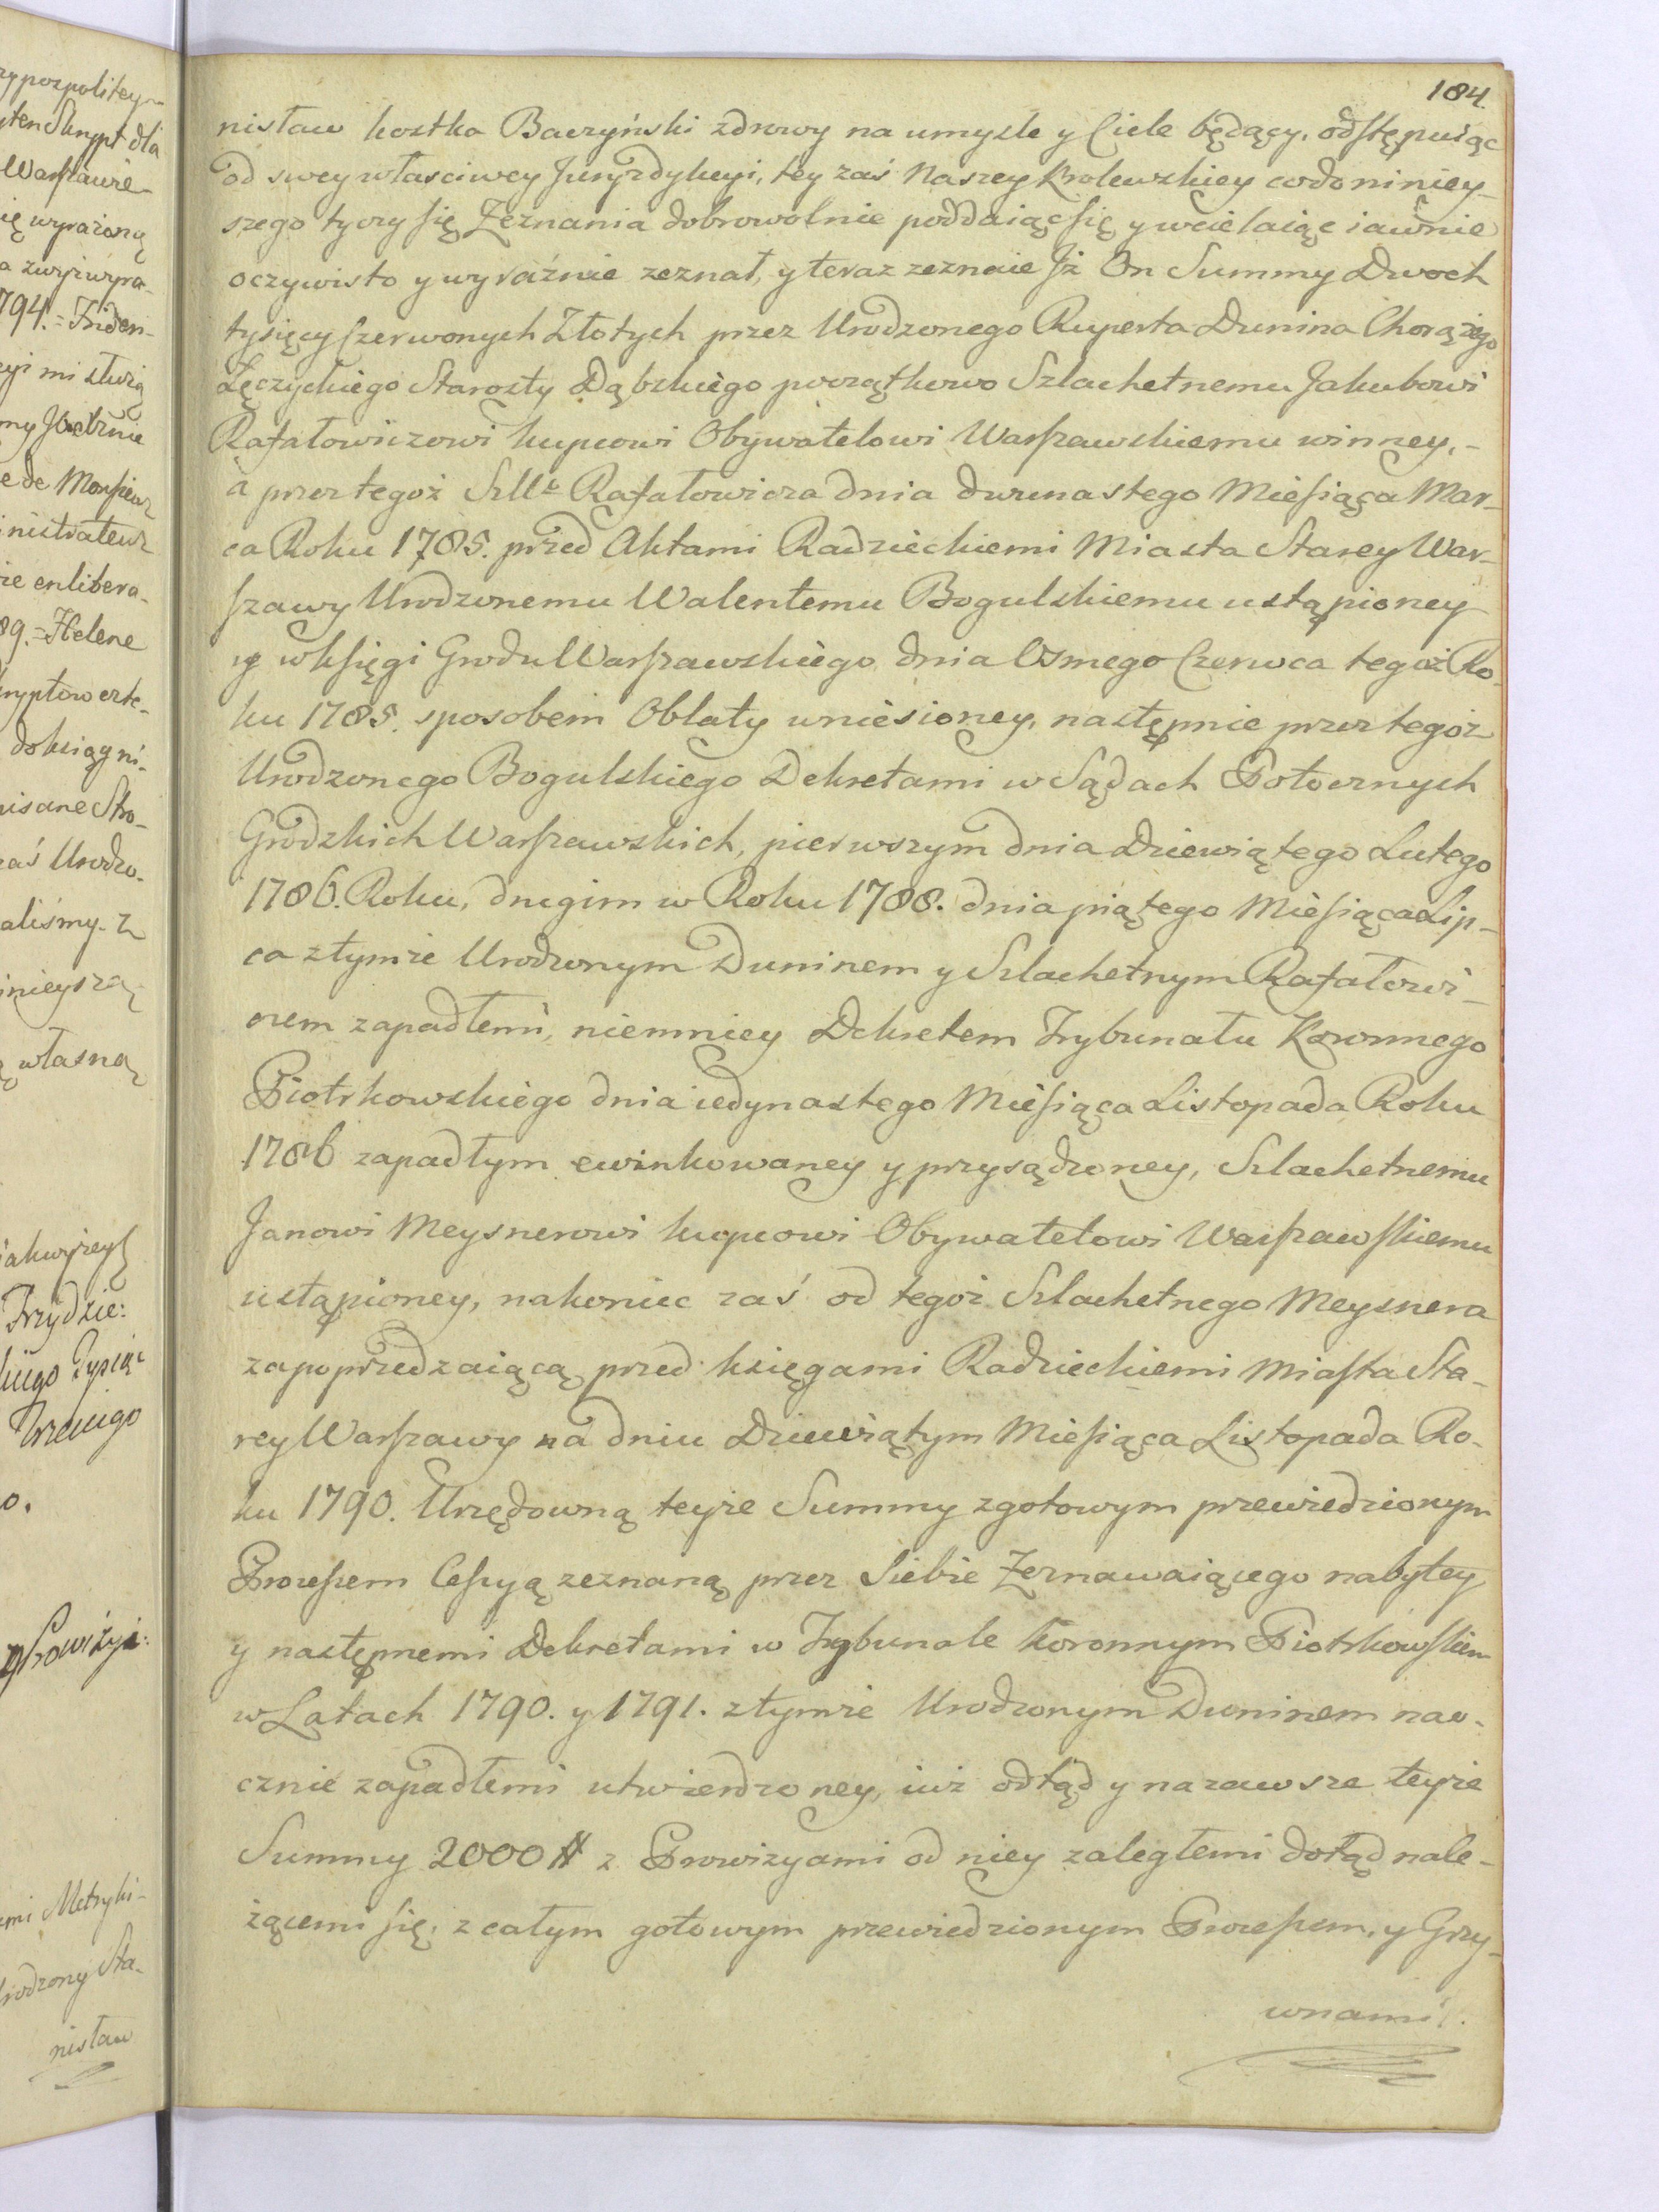 184
nisław Kostka Baczyński zdrowy na umyśle y Ciele będący, odstępuiąc
od swey własciwey Juryzdykcyi, tey zaś Naszey Krolewskiey codo niniey-
szego tyczy się Zeznania dobrowolnie poddaiąc się y wcielaiąc iawnie
oczywisto y wyraźnie zeznał, y teraz zeznaie Jż On Summy Dwoch
tysięcy Czerwonych Złotych przez Urodzonego Ruperta Dunina Chorążego
Łęczyckiego Starosty Dąbskiego początkowo Szlachetnemu Jakubowi
Rafałowiczowi kupcowi Obywatelowi Warszawskiemu winney,-
a przez tegoż Szlle Rafałowicza dnia dwunastego Miesiąca Mar-
ca Roku 1785. przed Aktami Radzieckiemi Miasta Starey War-
szawy Urodzonemu Walentemu Bogulskiemu ustąpioney
y w Księgi Grodu Warszawskiego dnia Osmego Czerwca tegoż Ro-
ku 1785. sposobem Oblaty wniesioney, następnie przez tegoż
Urodzonego Bogulskiego Dekretami w Sądach Potocznych
Grodzkich Warszawskich, pierwszym dnia Dziewiątego Lutego
1786. Roku, drugim w Roku 1788. dnia piątego Miesiąca Lip-
ca z tymże Urodzonym Duninem y Szlachetnym Rafałowi-
czem zapadłemi, niemniey Dekretem Trybunału Koronnego
Piotrkowskiego dnia iedynastego Miesiąca Listopada Roku
1786 zapadłym ewinkowaney y przysądzoney, Szlachetnemu
Janowi Meysnerowi kupcowi Obywatelowi Warszawskiemu
ustąpioney, nakoniec zaś od tegoż Szlachetnego Meysnera
zapoprzedzaiącą przed księgami Radzieckiemi Miasta Sta-
rey Warszawy na dniu Dziewiątym Miesiąca Listopada Ro-
ku 1790. Urzędowną teyże Summy z gotowym przewiedzionym
Processem Cessyą zeznaną przez Siebie Zeznawaiącego nabytey
y następnemi Dekretami w Trybunale Koronnym Piotrkowskim
w Latach 1790. y 1791. z tymże Urodzonym Duninem nao-
cznie zapadłemi utwierdzoney, iuż odtąd y nazawsze teyże
Summy 2000 # z Prowizyami od niey zaległemi dotąd nale-
żącemi się, z całym gotowym przewiedzionym Processem, y Grzy-
wnami.